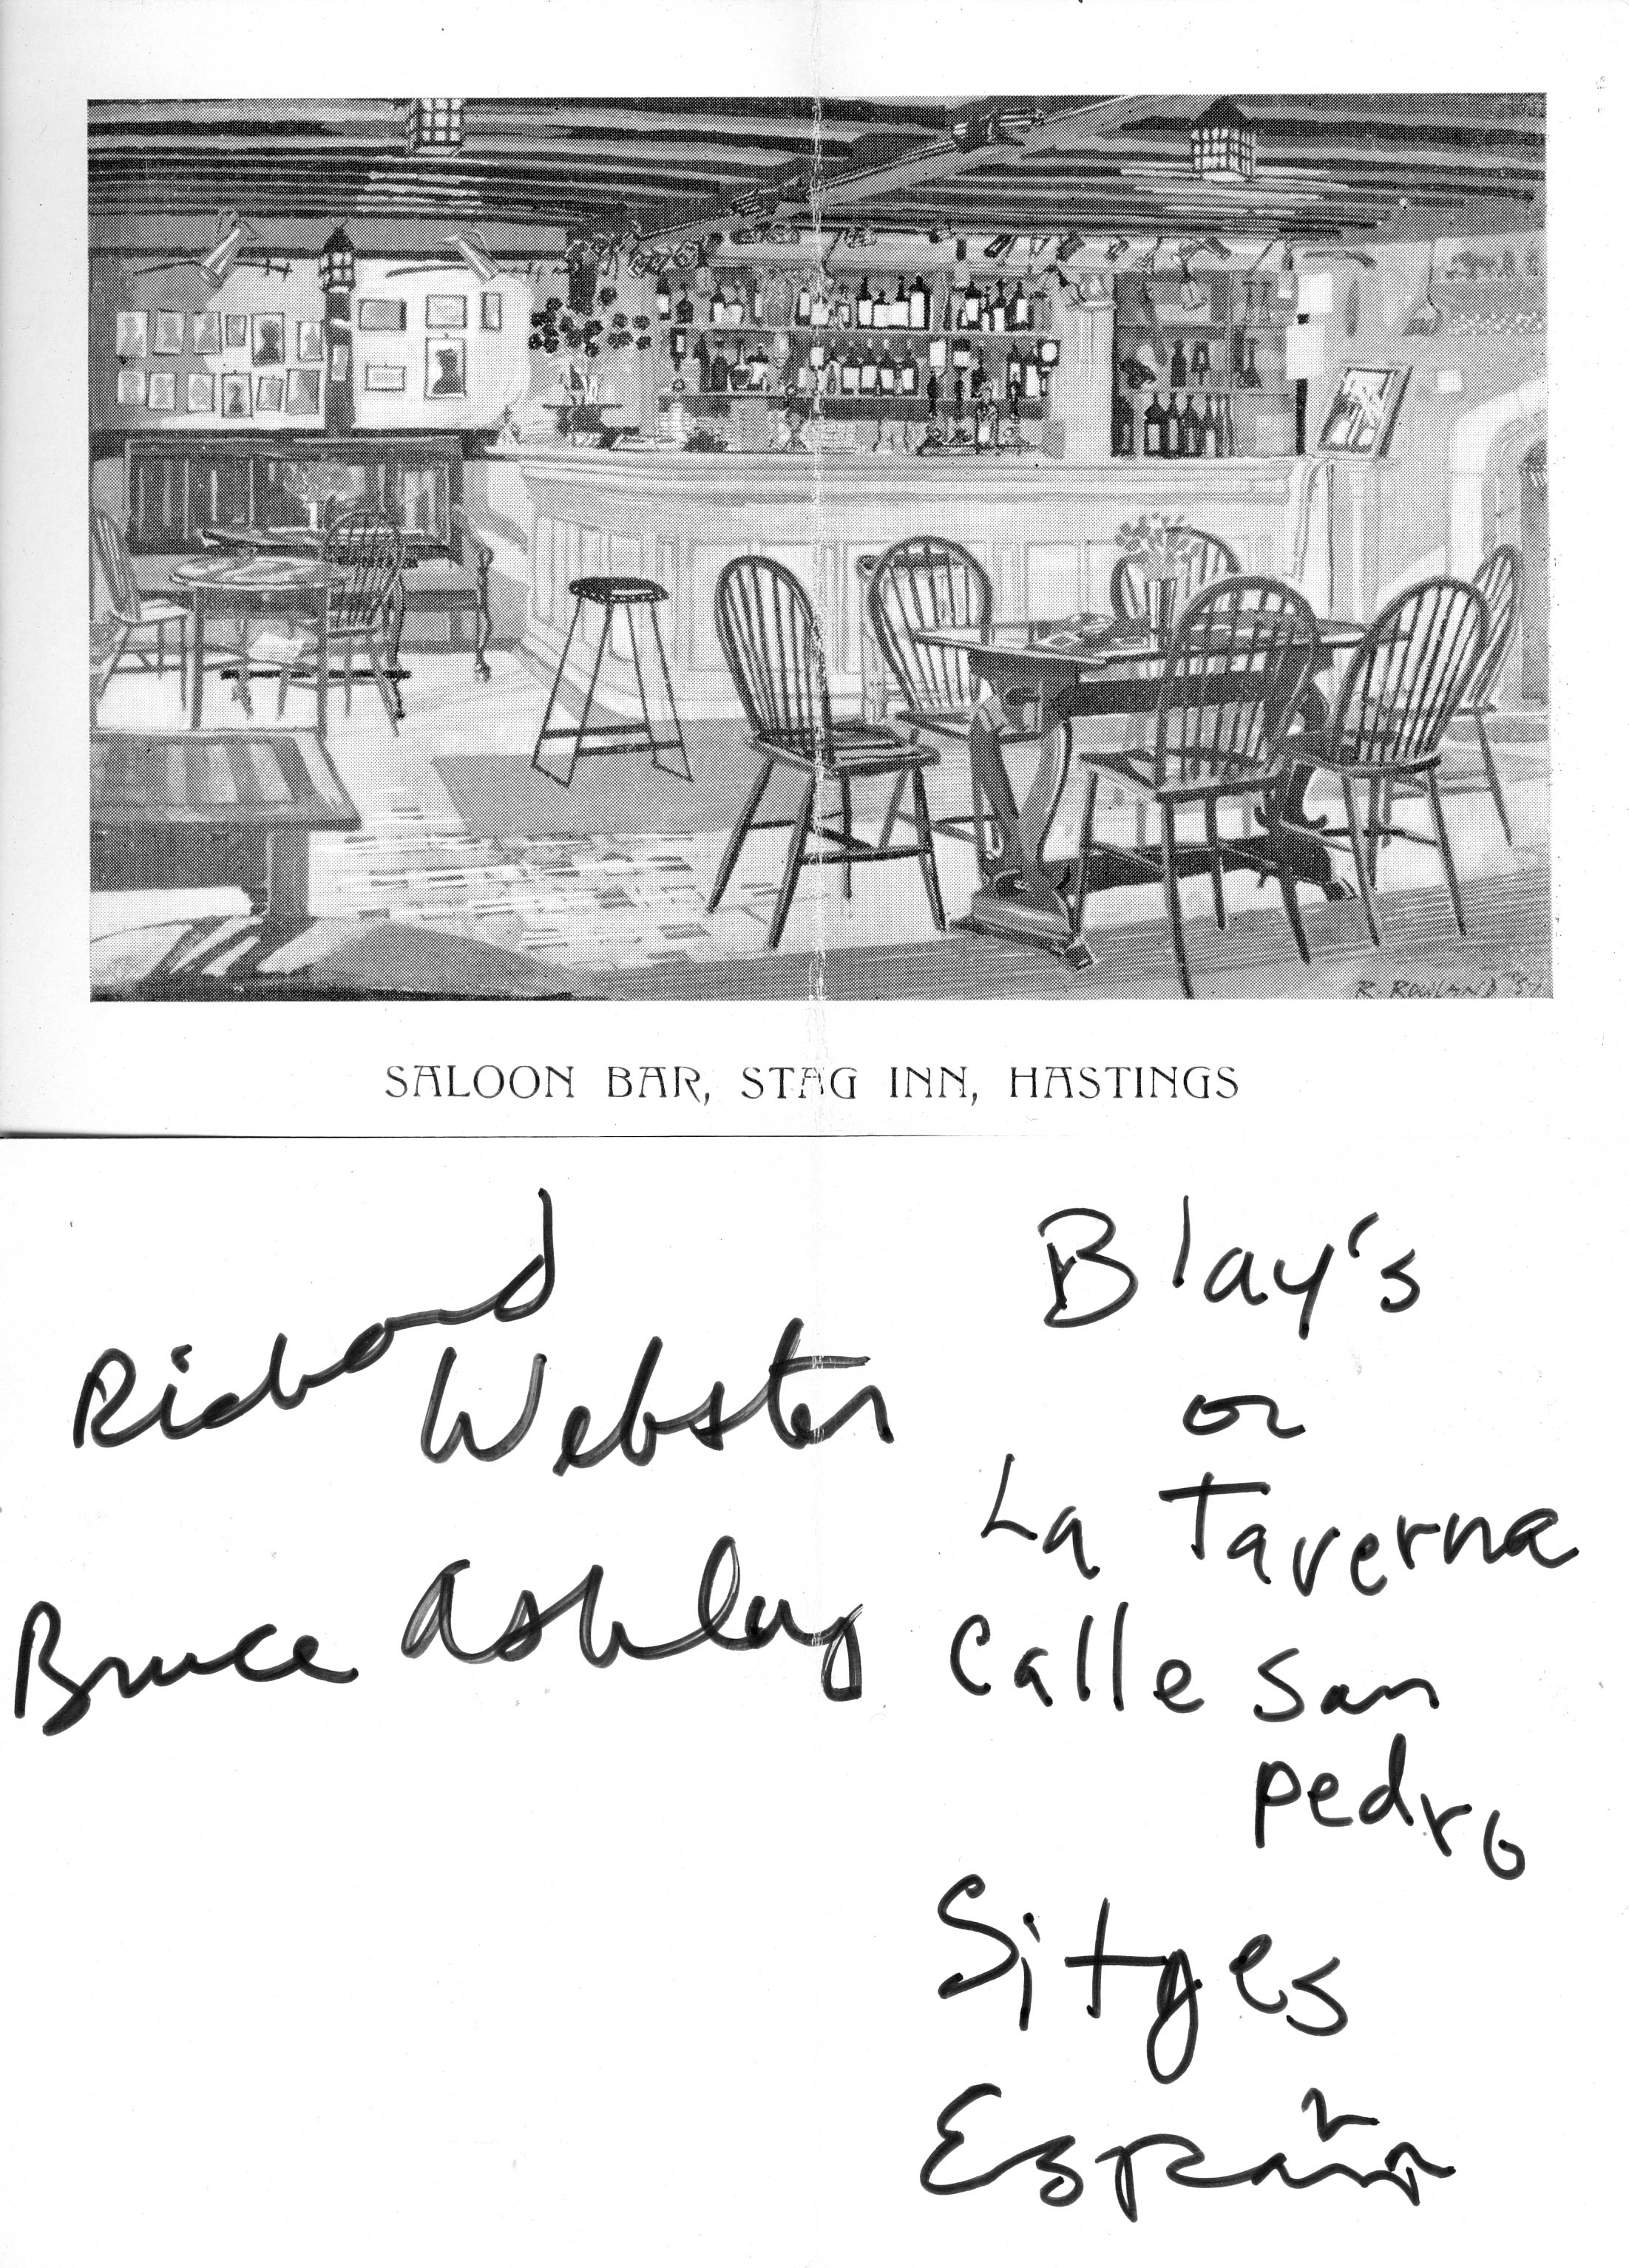 R. ROWLAND '57
SALOON BAR, STAG INN, HASTINGS
Richard
Webster
Bruce Ashley
Blay's
or
La Taverna
Calle San
pedro
Sitges
España